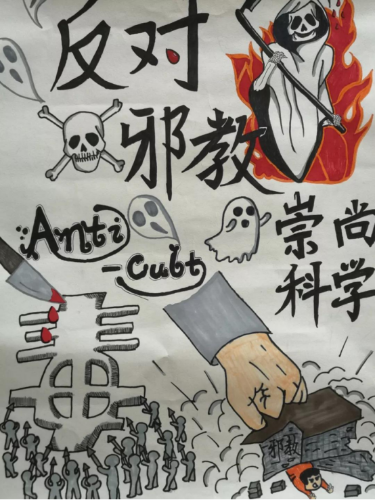 反对
邪教
Anti
-Cult
崇尚
科学
炸
邪教